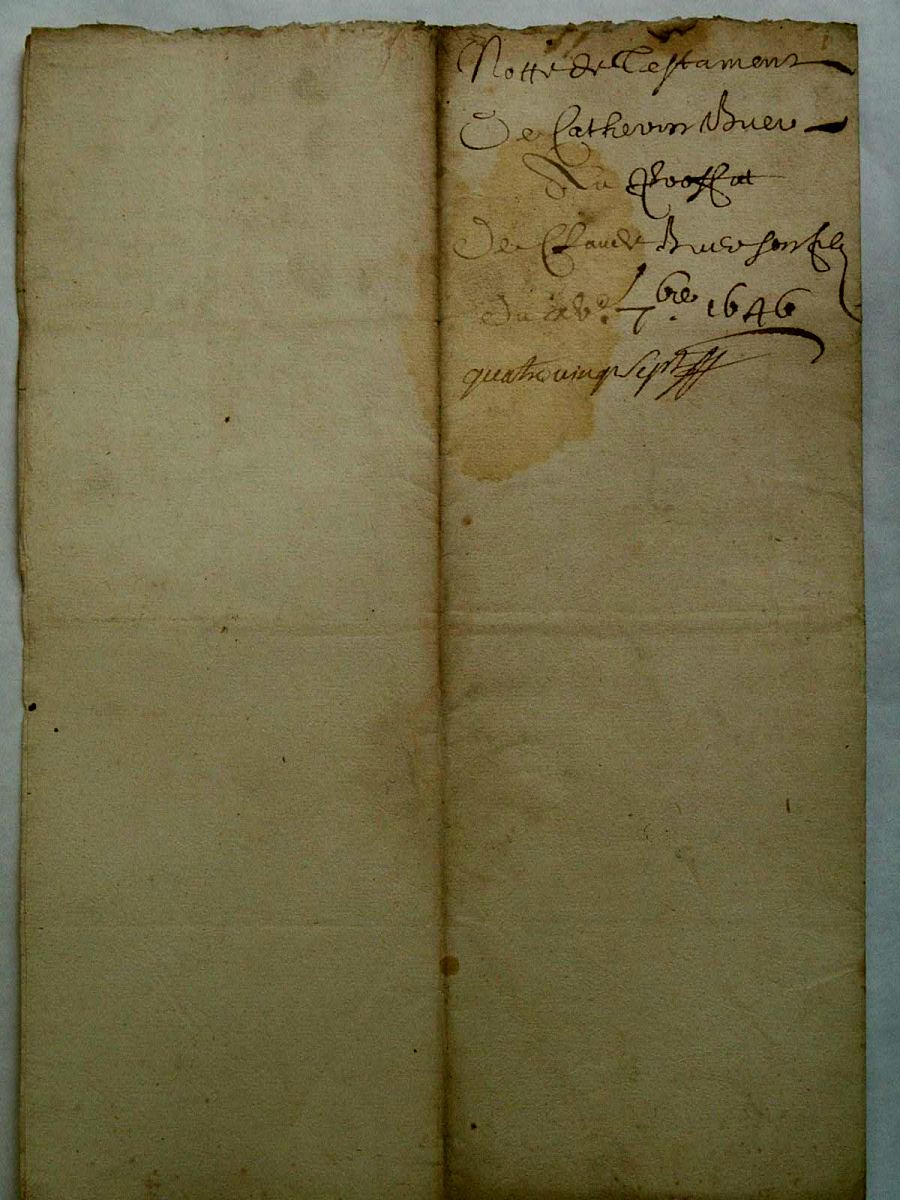 Notte de Testament
De Catherin Bruer
Au proffit
De Claude Bruer son filz
Du xve. 7bre. 1646
quatrevingt Sept